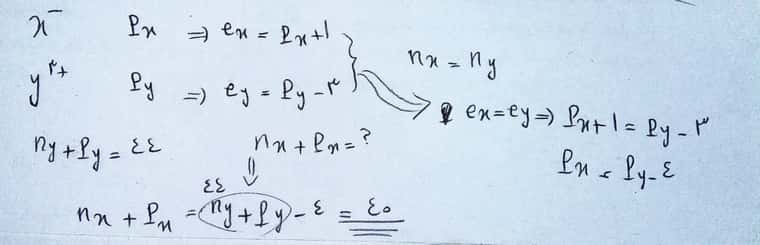 x⁻ Px ⇒ ex = Px+1
y³⁺ Py ⇒ ey = Py-۳
nx = ny
ex=ey ⇒ Px+1 = Py-۳
Px = Py-٤
ny+Py = ٤٤ nx+Px=?
⇓
٤٤
nx + Px = ny+Py-٤ = ٤٠